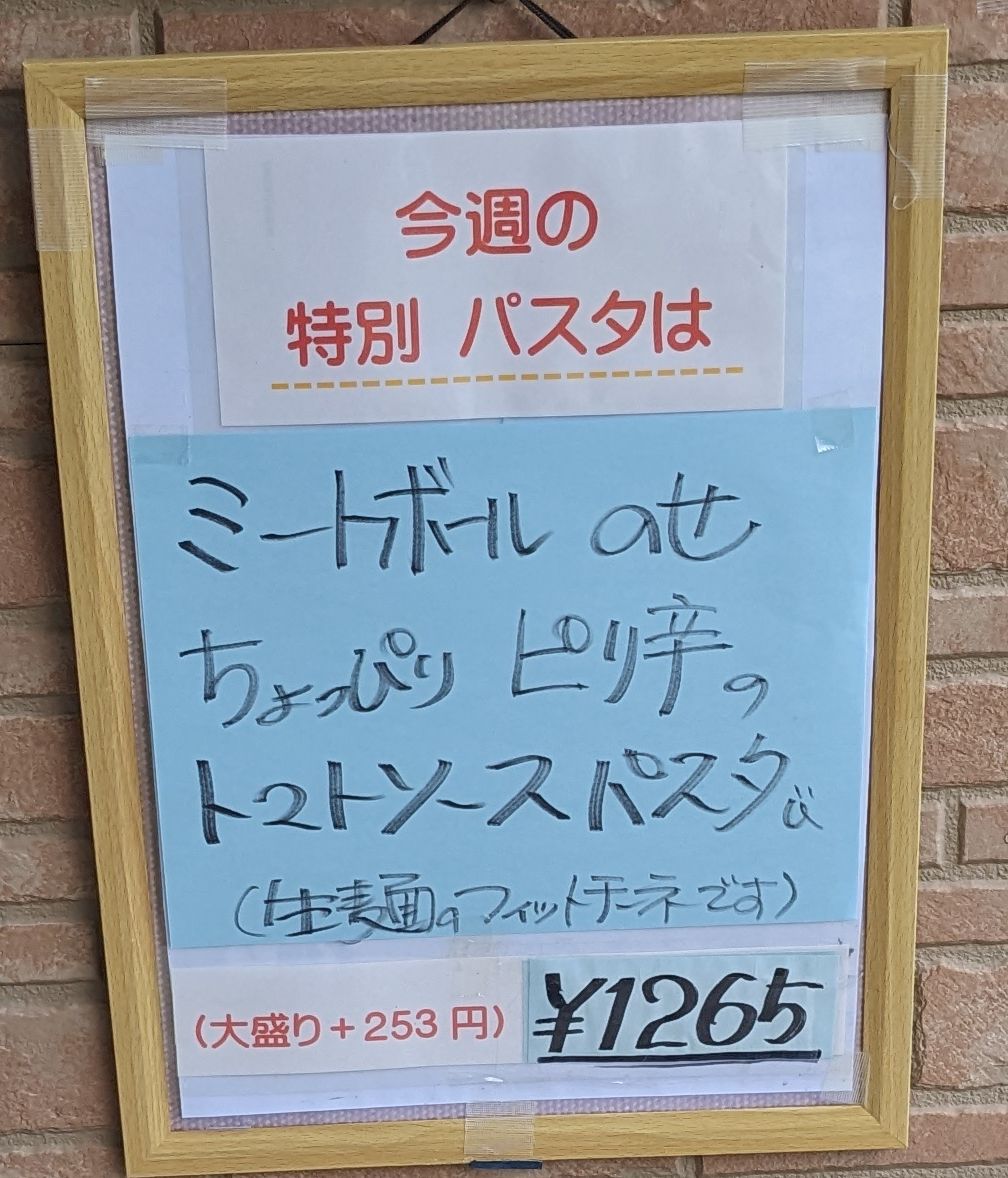 今週の
特別 パスタは
ミートボール のせ
ちょっぴり ピリ辛の
トマトソースパスタ
(生麺のフィットチーネです)
(大盛り+253円)
¥1265